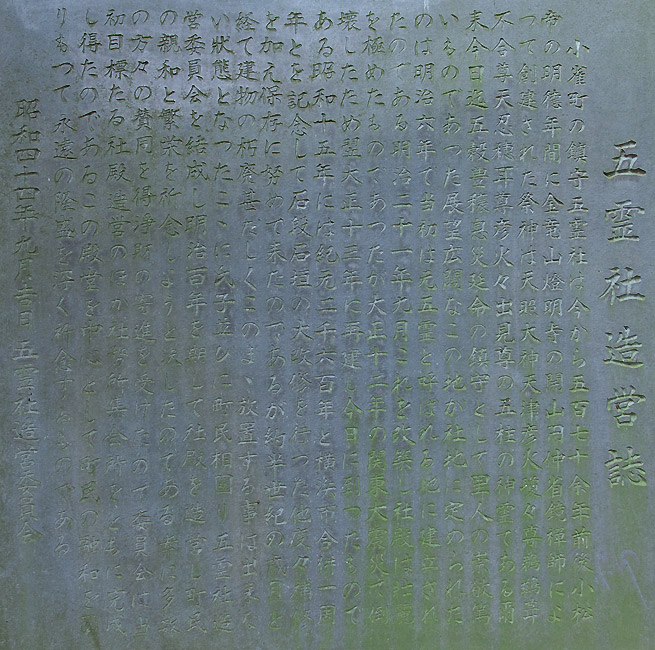 五霊社造営誌
小雀町の鎮守五霊社は今から五百七十余年前後小松
帝の明徳年間に金龍山燈明寺の開山円仲省鏡禅師によ
つて創建された祭神は天照大神天津彦火瓊々尊鵜鵜草
不合尊天忍穂耳尊彦火々出見尊の五柱の神霊である爾
来今日迄五穀豊穣息災延命の鎮守として里人の崇敬篤
いものであつた展望広闊なこの地が社地に定められた
のは明治六年で当初は元五霊と呼ばれる地に建立され
たのである明治二十一年九月これを改築し社殿は
を極めたものであつたが大正十二年の関東大震災で倒
壊したため翌大正十三年に再建し今日に到つたもので
ある昭和十五年には紀元二千六百年と横浜市合併一周
年とを記念して石段石垣の大改修を行つた他度々補修
を加え保存に努めて来たのであるが約半世紀の歳月を
経て建物の朽廃甚だしくこのまゝ放置する事は出来な
い状態となつたこゝに氏子並びに町民相図り五霊社造
営委員会を結成し明治百年を期して社殿を造営し町民
の親和と繁栄を祈念しようと表したのである幸に多数
の方々の賛同を得浄財の寄進を受けたので委員会は当
初目標たる社殿造営のほか社務所集会所をともに完成
し得たのであるこの殿堂を中心として町民の融和を
りもつて永遠の隆盛を深く祈念するものである
昭和四十四年九月吉日 五霊社造営委員会